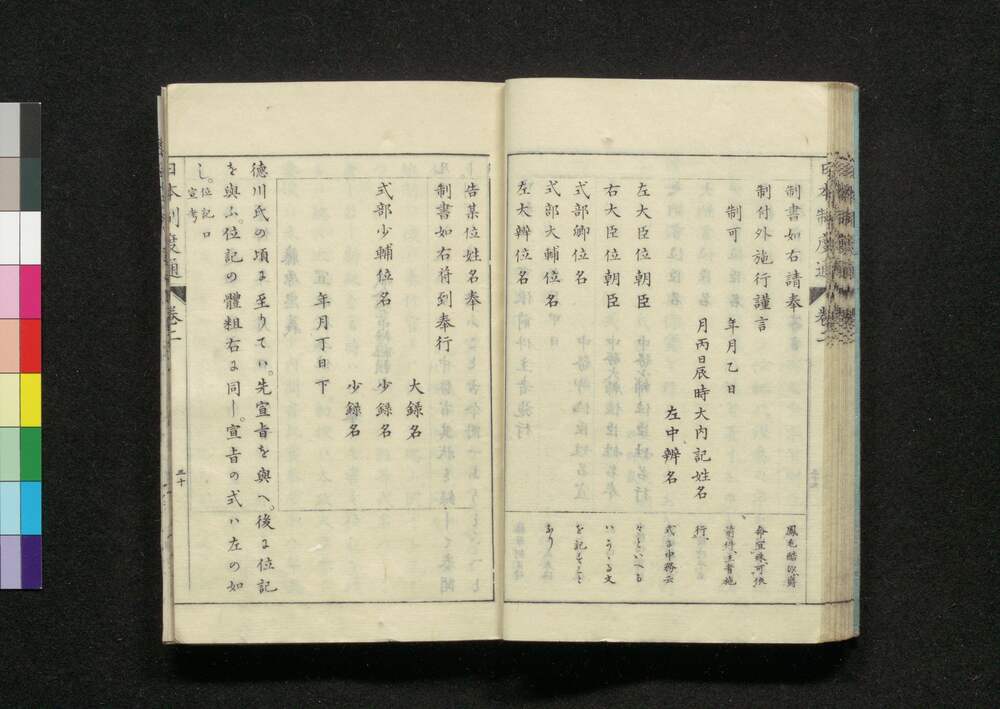 制書如右請奉
制付外施行謹言
制可　年月乙日
月丙日辰時大内記姓名
左中辨名
左大臣位朝臣
右大臣位朝臣
式部卿位名
式部大輔位名
左大辨位名
行、
式部中務云
々といへる
いかゝる文
を記すこと
あり
告某位姓名奉
制書如右符到奉行
大録名
式部少輔位名　少録名
少録名
年月丁日下
徳川氏の頃に至りてハ。先宣旨を與へ。後に位記
を與ふ。位記の體粗右に同し。宣旨の式ハ左の如
し。位記口宣考
日本制度通
卷二
三十